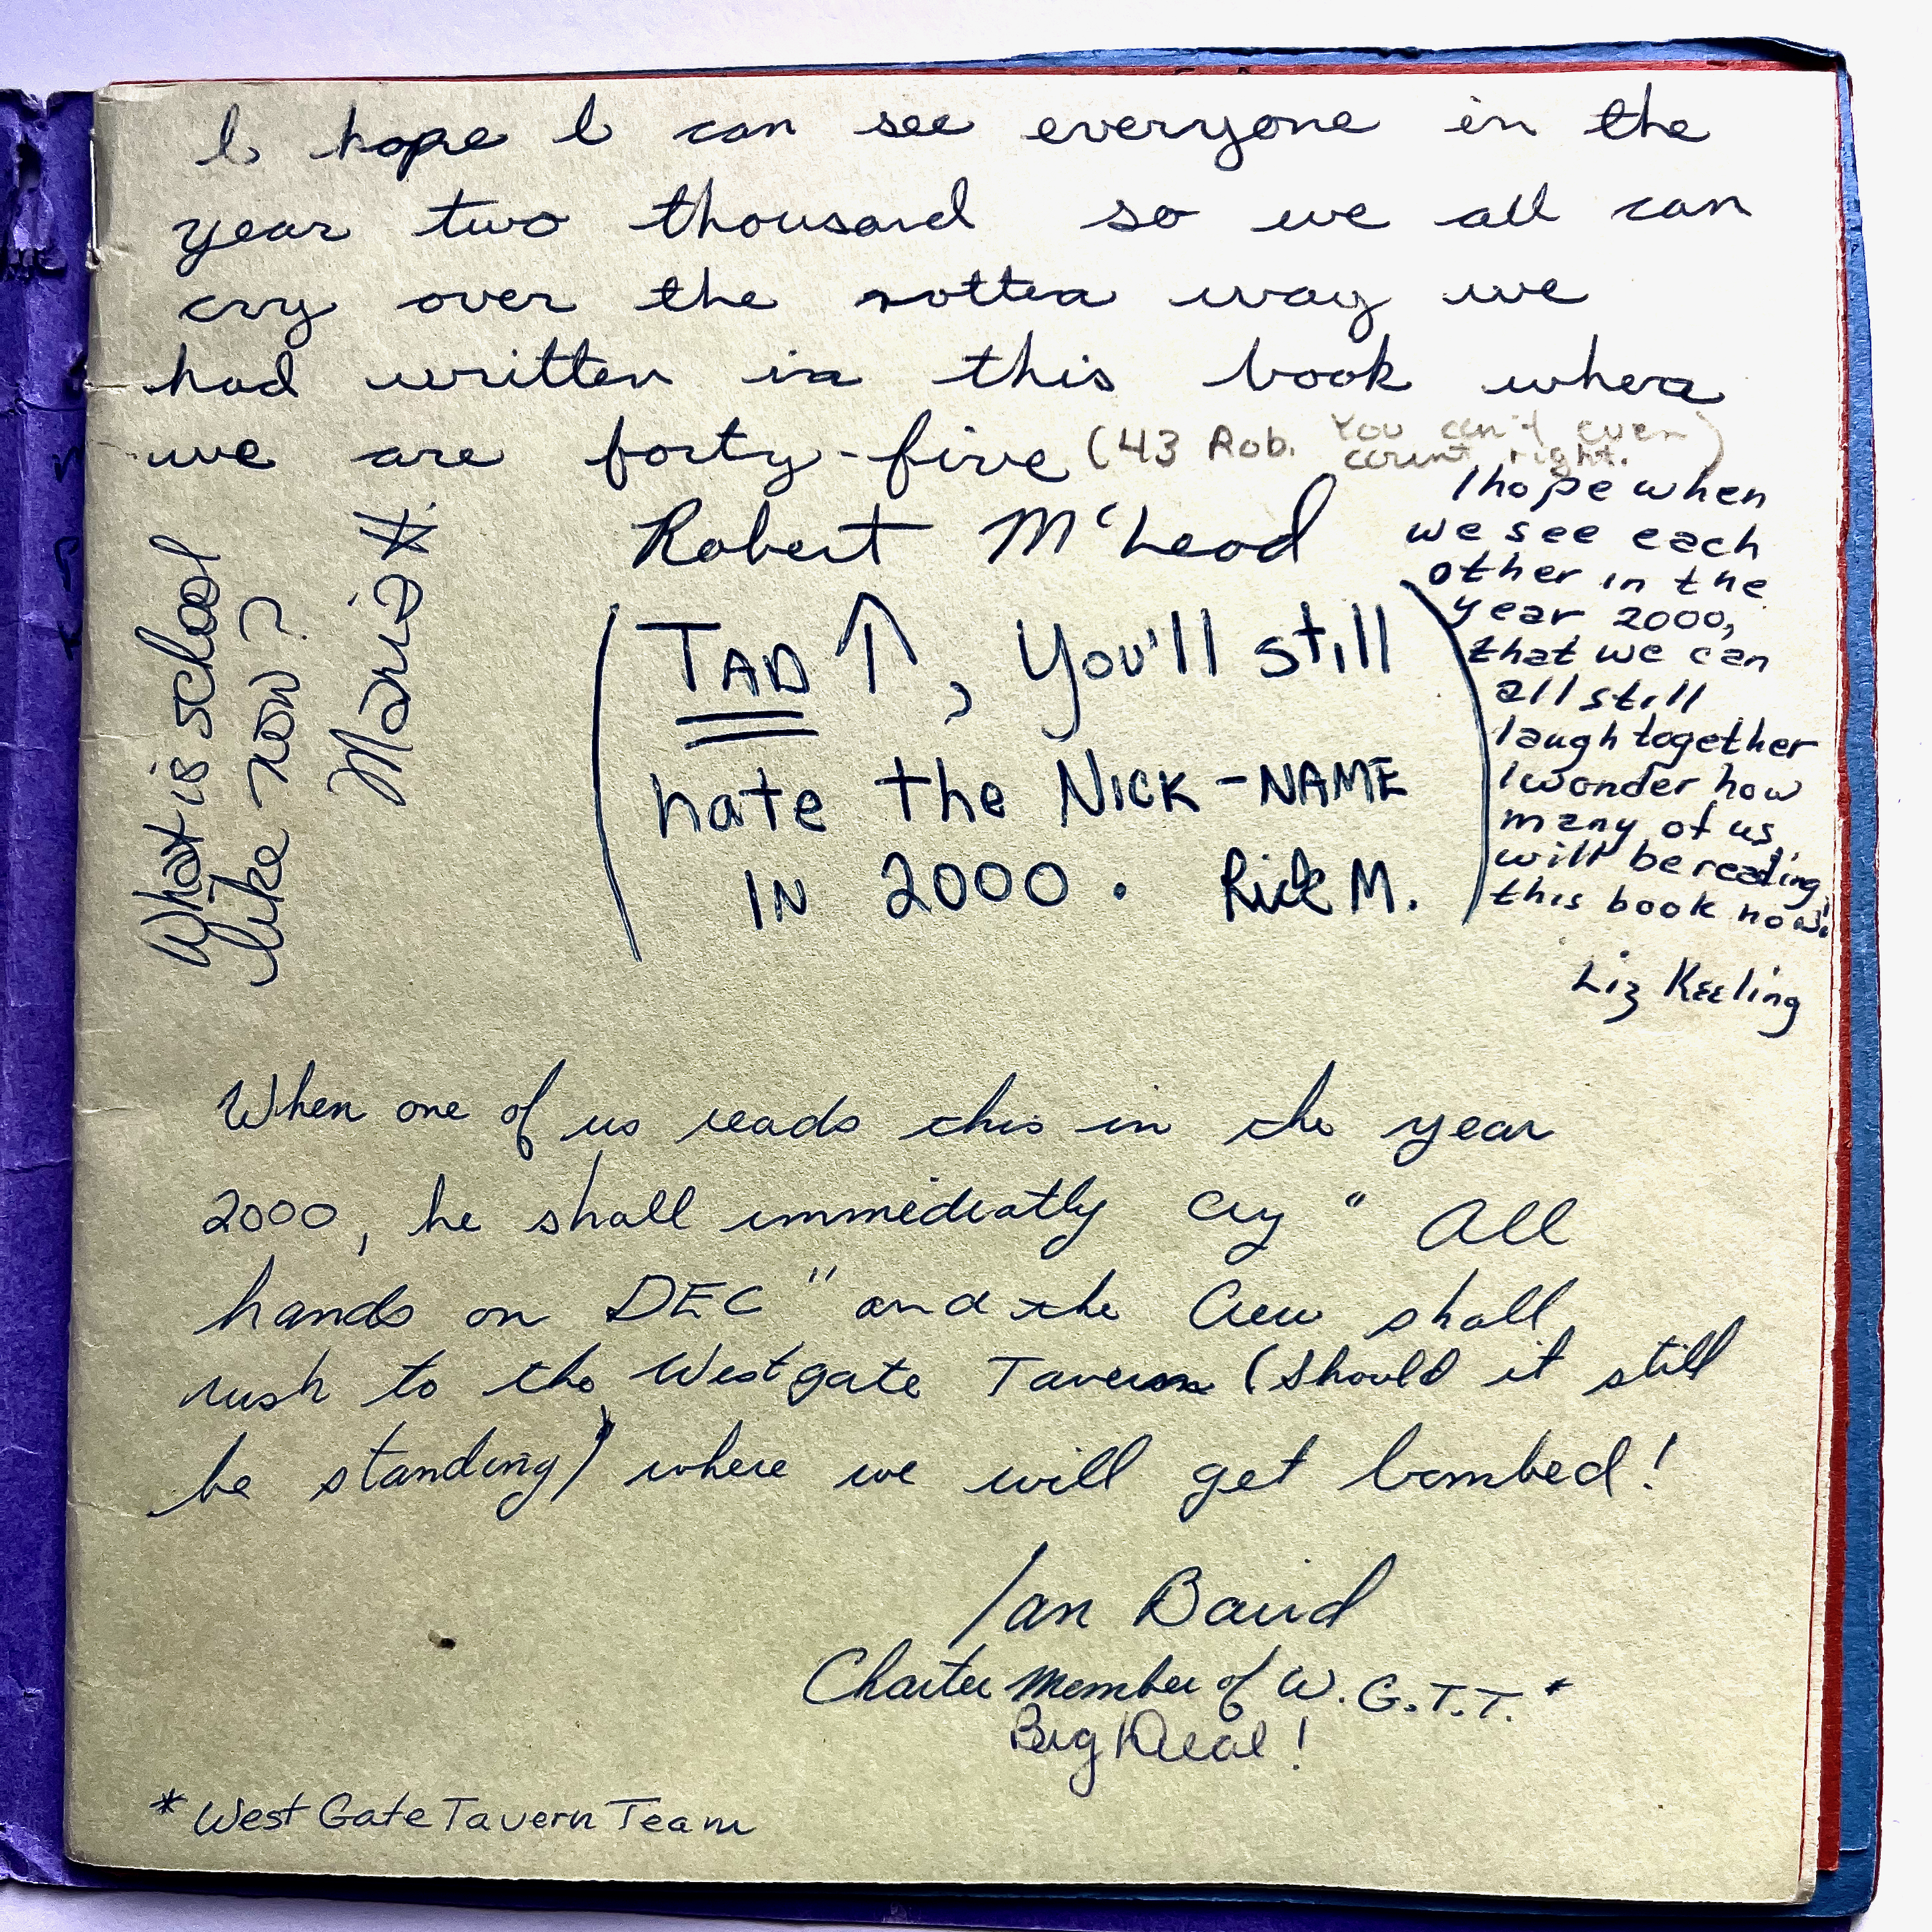 I hope I can see everyone in the
year two thousand so we all can
cry over the rotten way we
had written in this book when
we are forty-five
(43 Rob. You can't even
count right.)
Robert McLeod
What is school
like now?
Mario
(TAD ↑, You'll still
hate the NICK-NAME
IN 2000. Rick M.)
I hope when
we see each
other in the
year 2000,
that we can
all still
laugh together
I wonder how
many of us
will be reading
this book now!
Liz Keeling
When one of us reads this in the year
2000, he shall immediatly cry "All
hands on DEC" and the Crew shall
rush to the Westgate Tavern (should it still
be standing) where we will get bombed!
Ian Baird
Charter Member of W.G.T.T.*
Big Deal!
* West Gate Tavern Team